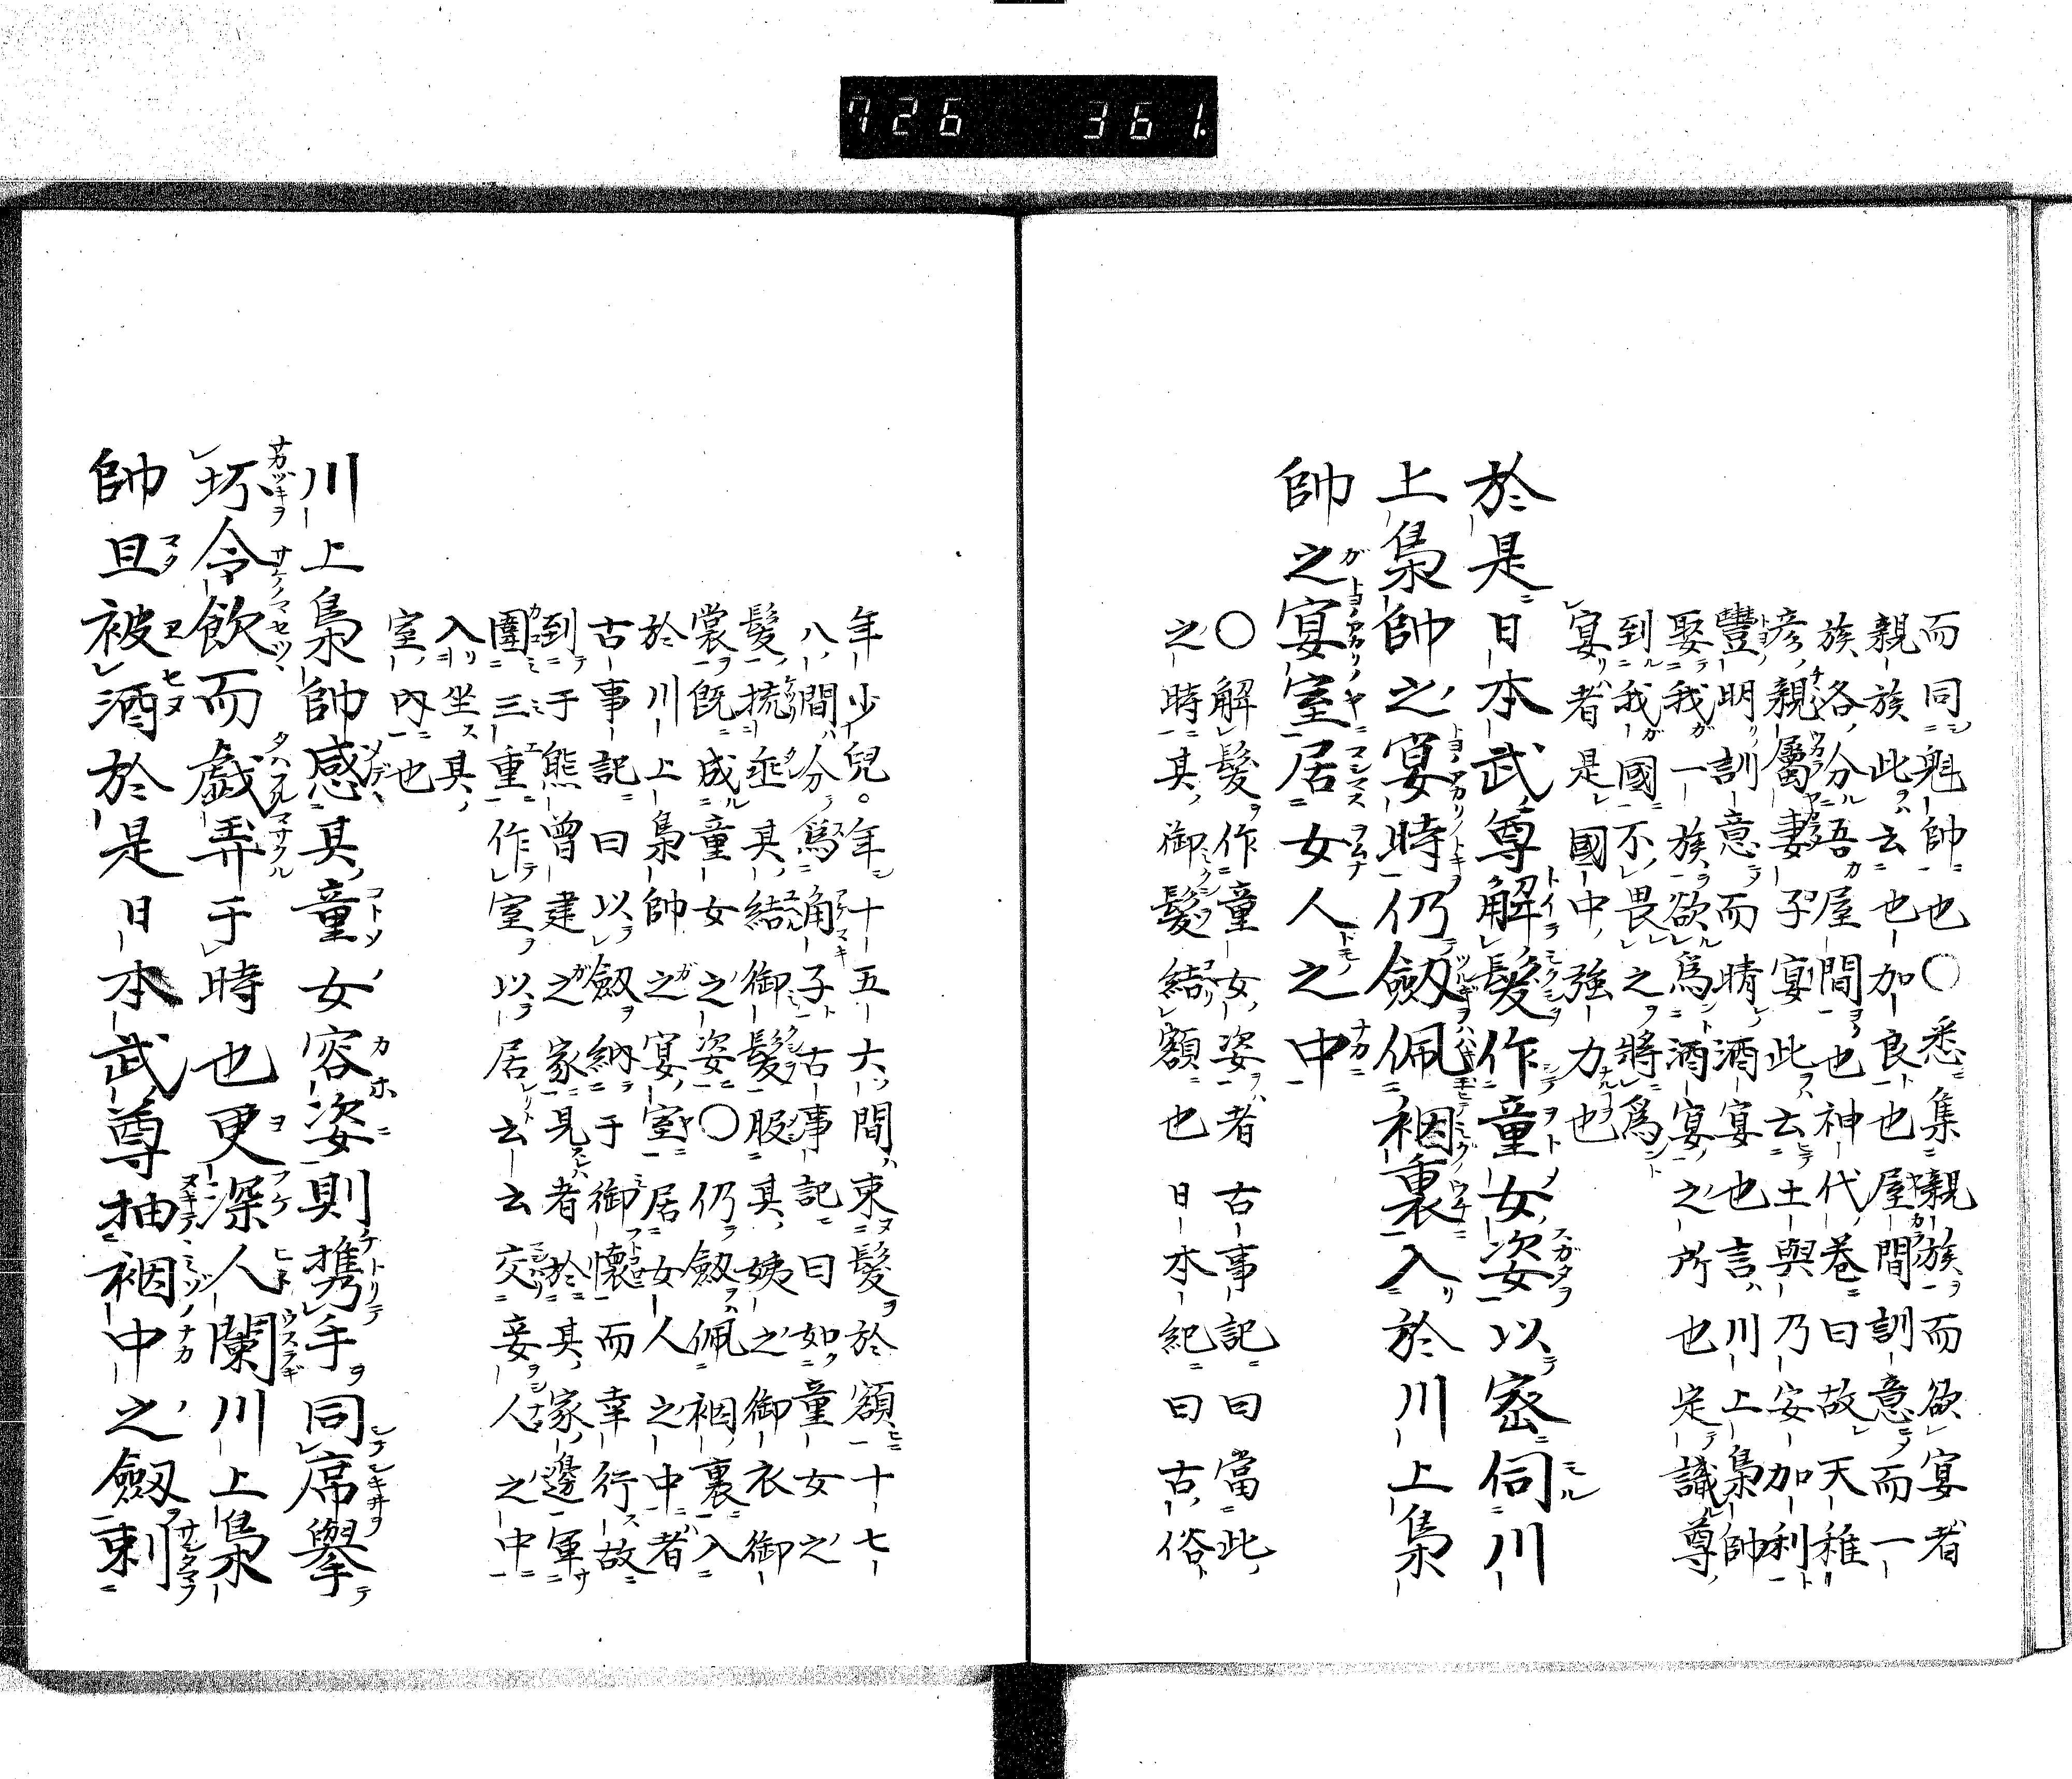 726 361.
而同魁帥也〇悉集親族而欲宴者
親族此云也加良也屋間訓意而一
族各分吾屋間也神代巻曰故天稚
彦親屬妻子宴此云土與乃安加利
豐明訓意而晴酒宴也言川上梟帥
娶我一族欲爲酒宴之所也定議尊
到我國不畏之將爲
宴者是國中強力也
於是日本武尊解髮作童女姿以密伺川
上梟帥之宴時仍劔佩裀裏入於川上梟
帥之宴室居女人之中
〇解髮作童女姿者古事記曰當此
之時其御髮結額也日本紀曰古俗
年少兒。年十五六間束髮於額十七
八間分爲角子古事記曰如童女之
髮梳垂其結御髮服其姨之御衣御
裳既成童女之姿〇仍劔佩裀裏入
於川上梟帥之宴室居女人之中者
古事記曰以劔納于御懷而幸行故
到于熊曾建之家見者於其家邊軍
圍三重作室以居云云交妾人之中
入坐其
室內也
川上梟帥感其童女容姿則携手同席擧
坏令飲而戯弄于時也更深人闌川上梟
帥且被酒於是日本武尊抽裀中之劔刺